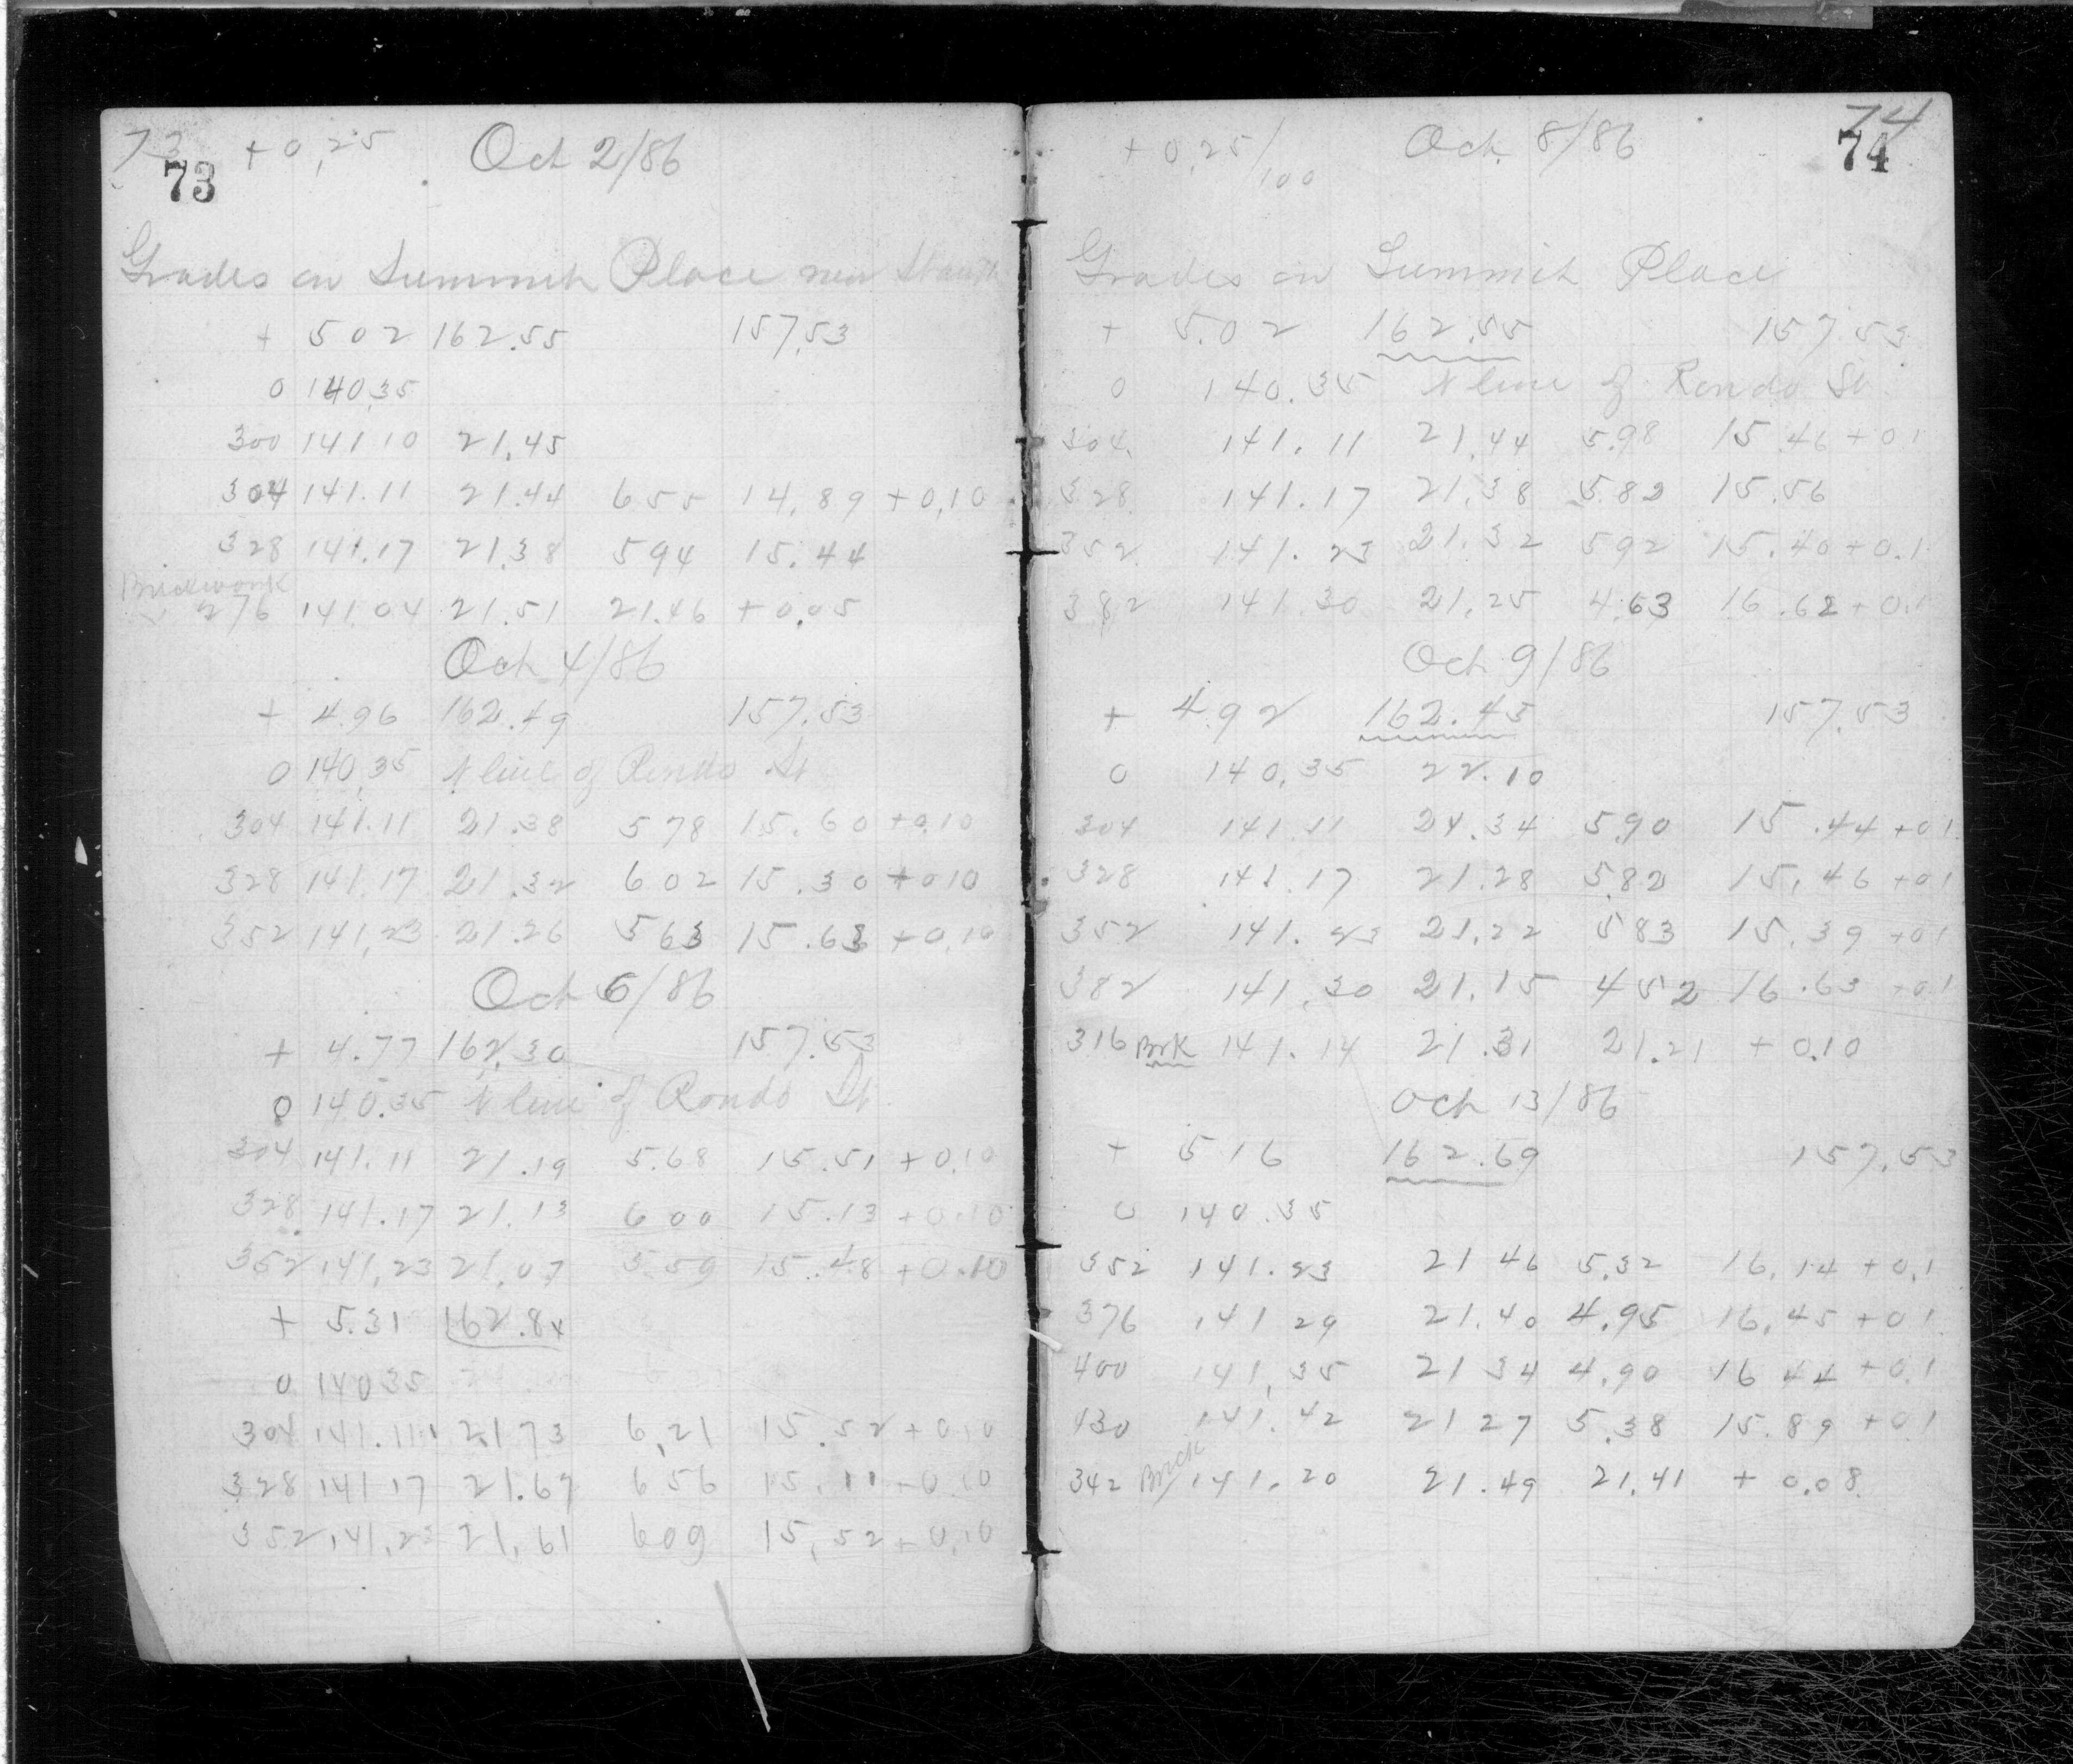 73 +0,25 Oct 2/86
73
Grades on Summit Place
+ 502 162.55 157.53
0 140.35
300 141 10 21.45
304 141.11 21.44 655 14,89 +0,10
328 141.17 21.38 594 15.44
Brickwork
276 141.04 21.51 21.46 +0.05
Oct 4/86
+ 4.96 162.49 157.53
0 140,35 N line of Rondo St
304 141.11 21.38 578 15.60 +0.10
328 141.17 21.32 602 15.30 +010
352 141,23 21.26 563 15.63 +0,10
Oct 6/86
+ 4.77 162.30 157.53
0 140.35 N line of Rondo St.
304 141.11 21.19 5.68 15.51 +0.10
328 141.17 21.13 600 15.13 +0.10
352 141,23 21.07 5.59 15.48 +0.10
+ 5.31 162.84
0 14035
304 141.11 21 73 6,21 15.52 +0,10
328 141 17 21.67 656 15.11 +0.10
352 141,23 21,61 609 15,52 +0,10
74
+0,25/100 Oct 8/86
74
Grades on Summit Place
+ 5.02 162.55 157.53
0 140.35 N line of Rondo St.
304 141.11 21,44 5.98 15.46 +01
328 141.17 21.38 5.82 15.56
352 141.23 21.32 592 15.40 +0.1
382 141.30 21,25 4.63 16.62 +0.1
Oct 9/86
+ 4.92 162.45 157.53
0 140,35 22.10
304 141.11 21.34 590 15.44 +01
328 141.17 21.28 5.82 15,46 +01
352 141.23 21.22 583 15.39 +01
382 141.30 21.15 452 16.63 +01
316 Brk 141.14 21.31 21.21 +0.10
Oct 13/86
+ 516 162.69 157.53
0 140.35
352 141.23 21 46 5.32 16,14 +0,1
376 141 29 21.40 4.95 16,45 +01
400 141,35 21 34 4.90 16 44 +0.1
430 141.42 21 27 5.38 15.89 +0.1
342 Brick 141.20 21.49 21.41 +0.08